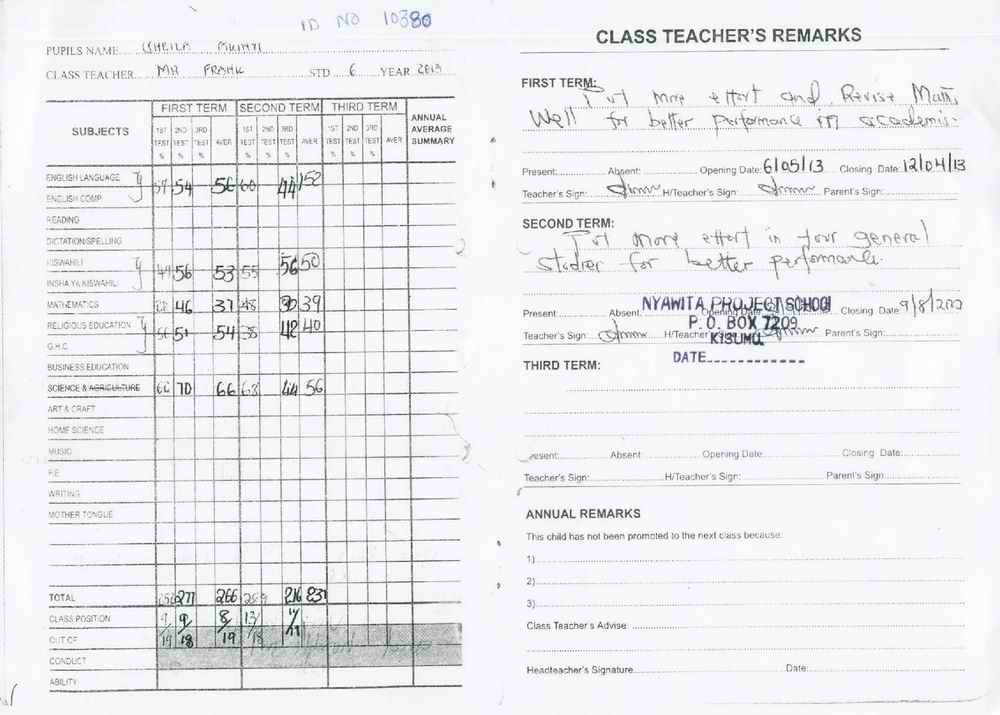 ID NO 10380
PUPILS NAME SHEILA
CLASS TEACHER MR FRANK STD 6 YEAR 2013
SUBJECTS FIRST TERM SECOND TERM THIRD TERM ANNUAL AVERAGE SUMMARY
1ST TEST % 2ND TEST % 3RD TEST % AVER 1ST TEST % 2ND TEST % 3RD TEST % AVER 1ST TEST % 2ND TEST % 3RD TEST % AVER
ENGLISH LANGUAGE 54 56 60 44 52
ENGLISH COMP.
READING
DICTATION/SPELLING
KISWAHILI 56 53 55 56 50
INSHA YA KISWAHILI
MATHEMATICS 46 37 48 30 39
RELIGIOUS EDUCATION 51 54 42 40
G.H.C
BUSINESS EDUCATION
SCIENCE & AGRICULTURE 66 70 66 68 44 56
ART & CRAFT
HOME SCIENCE
MUSIC
P.E
WRITING
MOTHER TONGUE
TOTAL 277 266 216 237
CLASS POSITION 9 8 13
OUT OF 19 18 19 18
CONDUCT
ABILITY
CLASS TEACHER'S REMARKS
FIRST TERM: Put more effort and Revise Math,
Well for better performance in academis.
Present: Absent: Opening Date: 6/05/13 Closing Date: 12/04/13
Teacher's Sign: H/Teacher's Sign: Parent's Sign:
SECOND TERM:
Put more effort in your general
studies for better performance.
NYAWITA PROJECT SCHOOL
P. O. BOX 7209
KISUMU
DATE
Present: Absent: Opening Date: Closing Date: 9/8/20
Teacher's Sign: H/Teacher's Sign: Parent's Sign:
THIRD TERM:
Present: Absent: Opening Date: Closing Date:
Teacher's Sign: H/Teacher's Sign: Parent's Sign:
ANNUAL REMARKS
This child has not been promoted to the next class because:
1)
2)
3)
Class Teacher's Advise:
Headteacher's Signature Date: